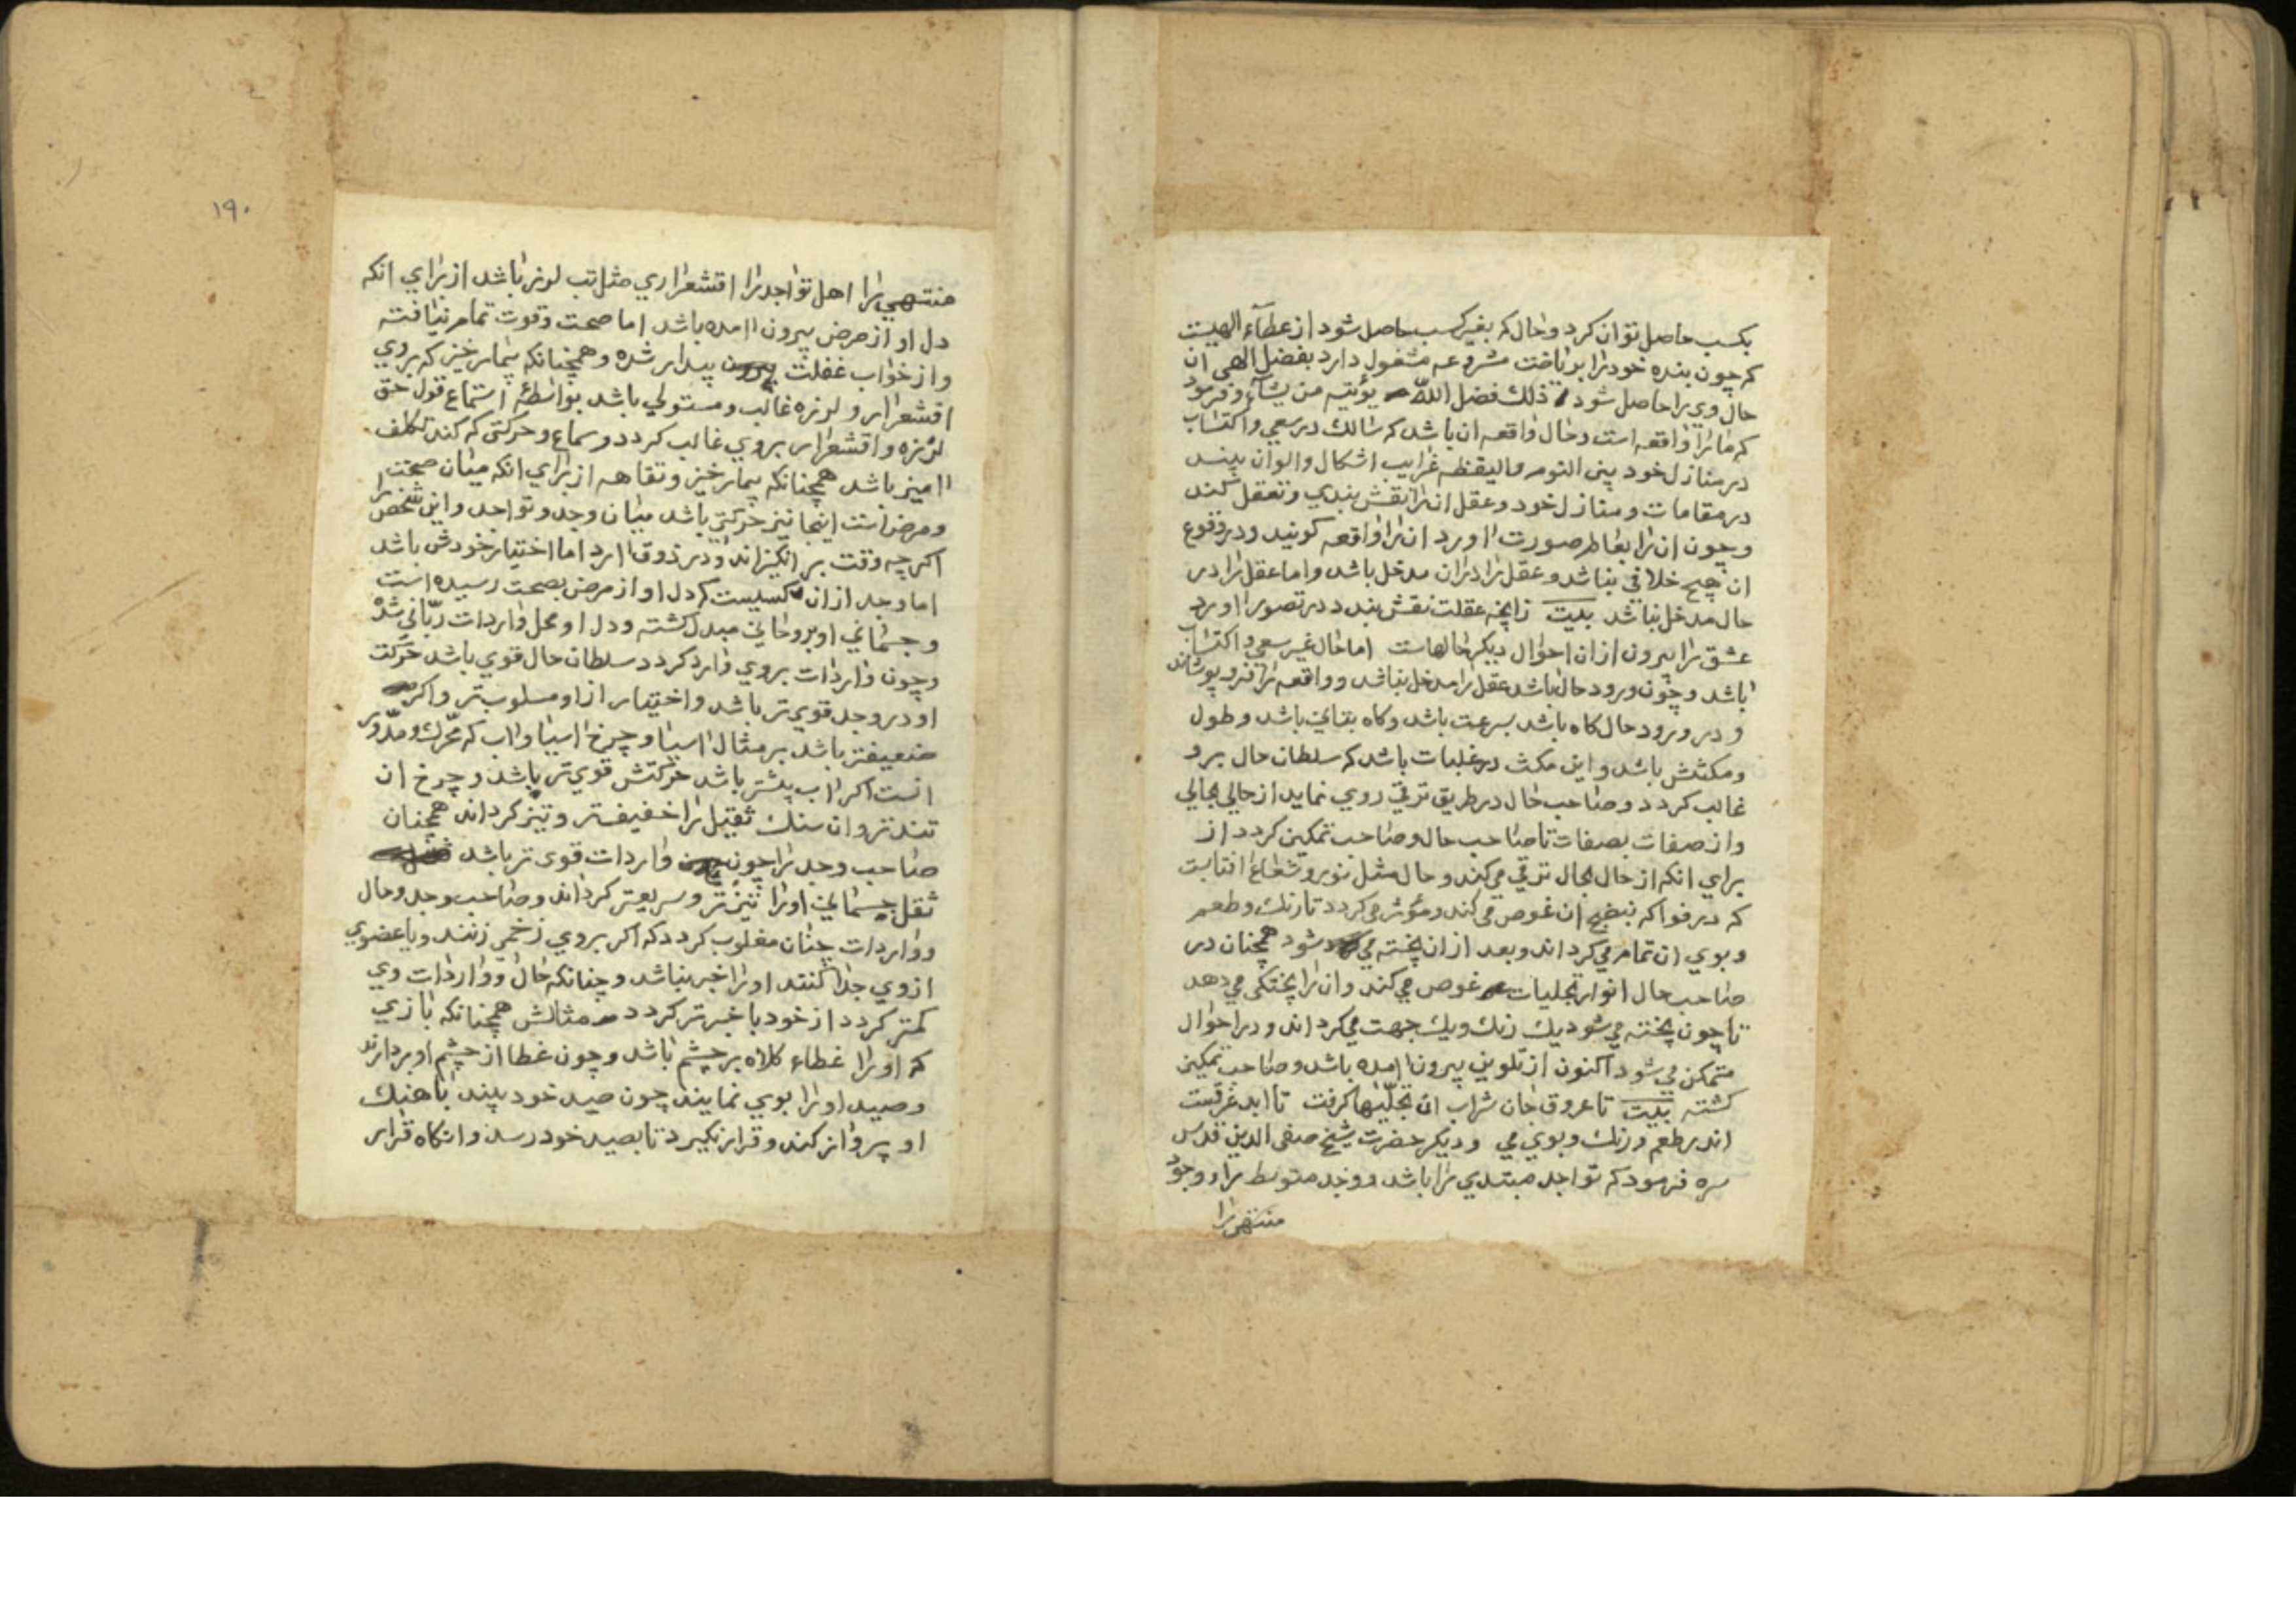 بكسب حاصل توان كرد وحال كه بغير كسب حاصل شود از عطآء الهيست
كه چون بنده خود را برياضت مشروعه مشغول دارد بفضل الهى ان
حال وي را حاصل شود ذلك فضل الله يؤتيه من يشآء وفرمود
كه ما را واقعه است وحال واقعه ان باشد كه سالك در سعي واكتساب
در منازل خود بين النوم واليقظه غرايب اشكال والوان بيند
در مقامات ومنازل خود وعقل ان را نقش بندي وتعقل كند
وچون ان را بظاهر صورت اورد ان را واقعه كويند ودر وقوع
ان هيچ خلافي نباشد وعقل را در ان مدخل باشد واما عقل را در
حال مدخل نباشد بيت زانچه عقلت نقش بندد در تصور اورد
عشق را بيرون ازان احوال ديكر حالهاست اما حال غير سعي واكتساب
باشد وچون ورود حال باشد عقل را مدخل نباشد وواقعه را فرو پوشاند
و در ورود حال كاه باشد بسرعت باشد وكاه بتاني باشد وطول
ومكثش باشد واين مكث در غلبات باشد كه سلطان حال برو
غالب كردد وصاحب حال در طريق ترقي روي نمايد از حالي بحالي
واز صفات بصفات تا صاحب حال وصاحب تمكين كردد از
براي انكه از حال بحال ترقي مي كند وحال مثل نور وشعاع افتابست
كه در فواكه بنضج ان غوص مي كند ومؤثر مي كردد تا رنك وطعم
وبوي ان تمام مي كرداند وبعد ازان پخته مي شود همچنان در
صاحب حال انوار تجليات غوص مي كند وان را پختكى مي دهد
تا چون پخته مي شود يك رنك ويك جهت مي كرداند ودر احوال
متمكن مي شود اكنون از تلوين بيرون امده باشد وصاحب تمكين
كشته بيت تا عروق جان شراب ان تجلّيها كرفت تا ابد غرقست
اندر طعم ورنك وبوي مي وديكر حضرت شيخ صفى الدين قدس
سره فرمود كه تواجد مبتدي را باشد ووجد متوسط را ووجود
منتهى را
١٩٠
منتهي را اهل تواجد را اقشعراري مثل تب لرز باشد از براي انكه
دل او از مرض بيرون امده باشد اما صحت وقوت تمام نيافته
واز خواب غفلت بيدار شده وهمچنانكه بيمار خيز كه بروي
اقشعرار ولرزه غالب ومستولي باشد بواسطهٔ استماع قول حق
لرزه واقشعرار بروي غالب كردد وسماع وحركتي كه كند تكلف
اميز باشد همچنانكه بيمار خيز ونقاهه از براي انكه ميان صحت
ومرض است اينجا نيز حركتي باشد ميان وجد وتواجد واين شخص را
اكر چه وقت بر انكيزاند ودر ذوق ارد اما اختيار خودش باشد
اما وجد ازان كسيست كه دل او از مرض بصحت رسيده است
وجسماني او بروحاني مبدل كشته ودل او محل واردات ربّاني شده
وچون واردات بروي وارد كردد سلطان حال قوي باشد حركت
او در وجد قوي تر باشد واختيار ازاو مسلوب تر واكر
ضعيفتر باشد بر مثال اسيا وچرخ اسيا واب كه محّرك ومدّور
انست اكر اب بيشتر باشد حركتش قوي تر باشد وچرخ ان
تند تر وان سنك ثقيل را خفيفتر وتيز كرداند همچنان
صاحب وجد را چون واردات قوى تر باشد
ثقل جسماني او را تيز تر وسريعتر كرداند وصاحب وجد وحال
وواردات چنان مغلوب كردد كه اكر بروي زخمي زنند ويا عضوي
ازوي جدا كنند او را خبر نباشد وچنانكه حال وواردات وي
كمتر كردد از خود با خبر تر كردد مثالش همچنانكه بازي
كه او را غطاء كلاه بر چشم باشد وچون غطا از چشم او بردارند
وصيد او را بوي نمايند چون صيد خود بيند باهنك
او پرواز كند وقرار نكيرد تا بصيد خود رسد وانكاه قرار